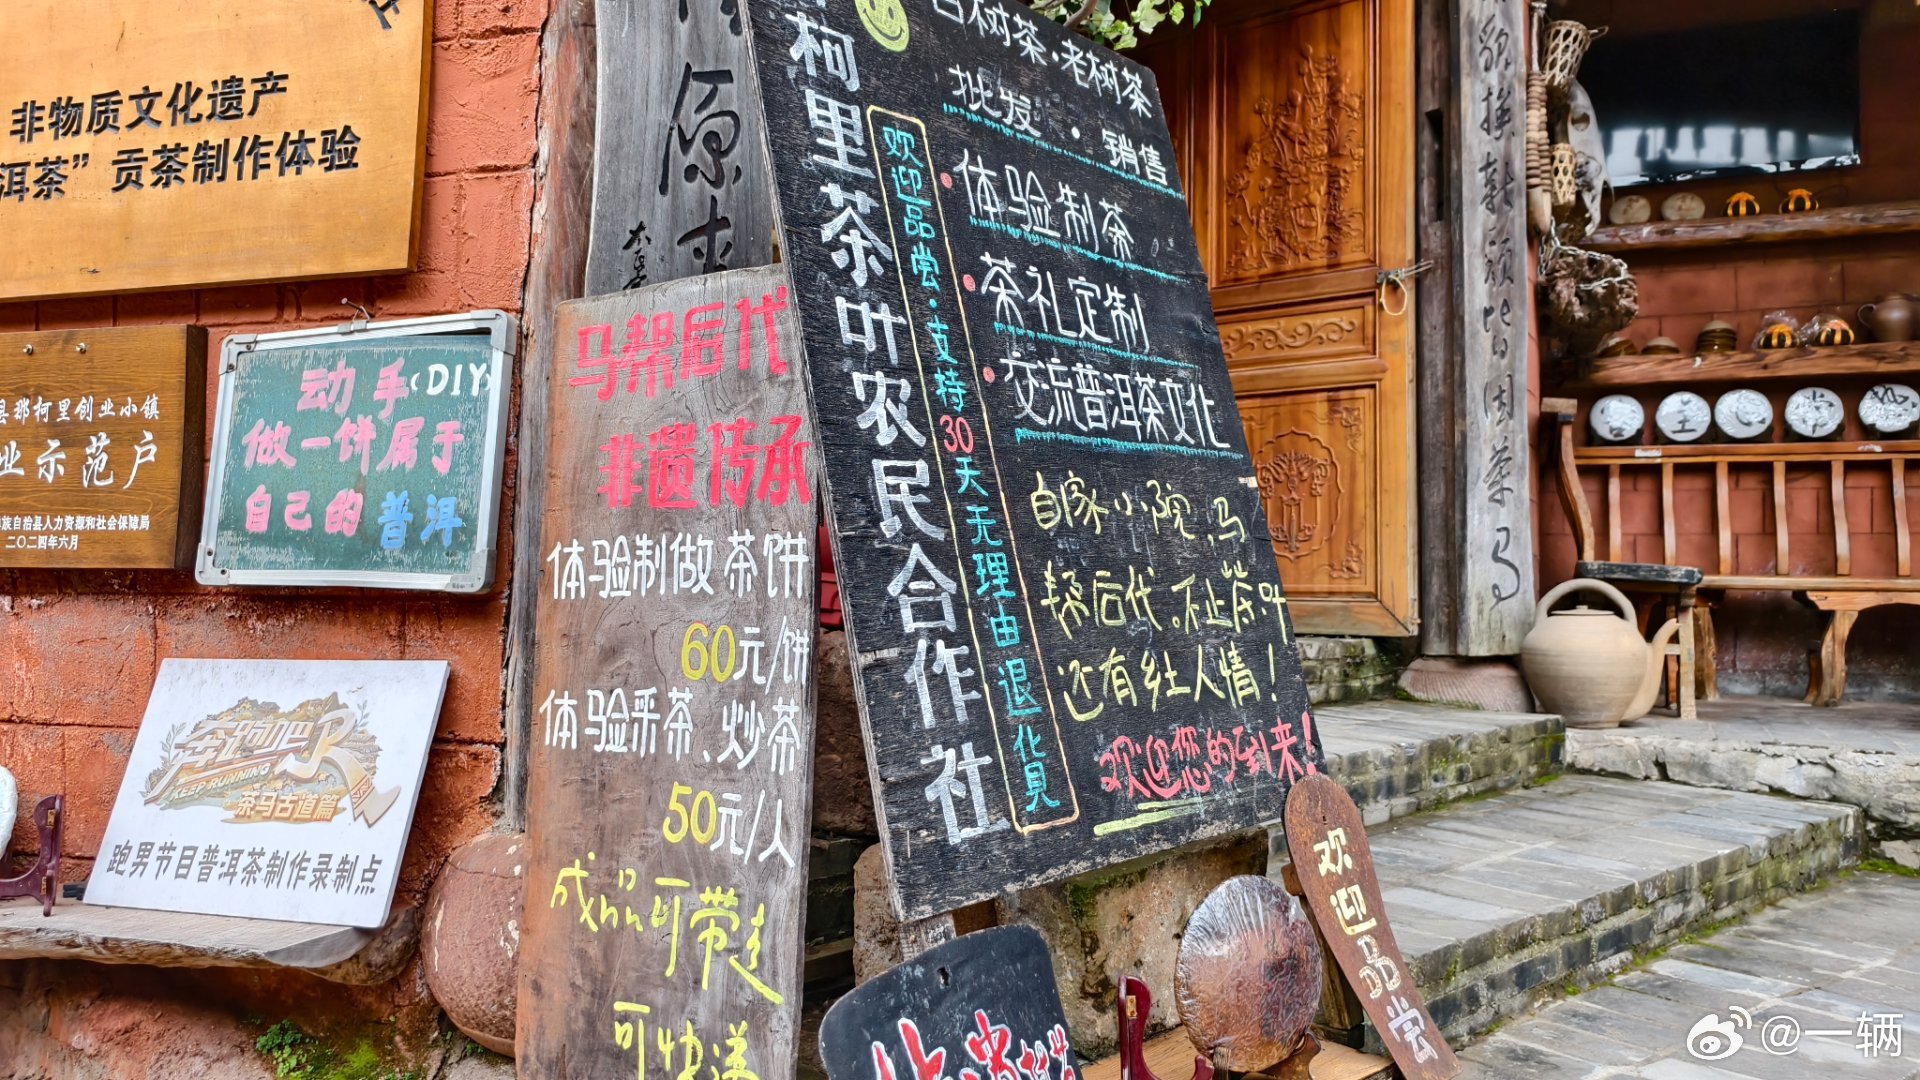 非物质文化遗产
洱茶”贡茶制作体验
县那柯里创业小镇
业示范户
族自治县人力资源和社会保障局
二〇二四年六月
动手(DIY)
做一饼属于
自己的普洱
奔跑吧
KEEP RUNNING
茶马古道篇
跑男节目普洱茶制作录制点
原来
马帮后代
非遗传承
体验制做茶饼
60元/饼
体验采茶、炒茶
50元/人
成品可带走
可快递
柯里茶叶农民合作社
欢迎品尝·支持30天无理由退化贝
古树茶·老树茶
批发·销售
体验制茶
茶礼定制
交流普洱茶文化
自家小院、马
帮后代。不止茶叶
还有乡土人情！
欢迎您的到来！
欢迎品尝
@一辆